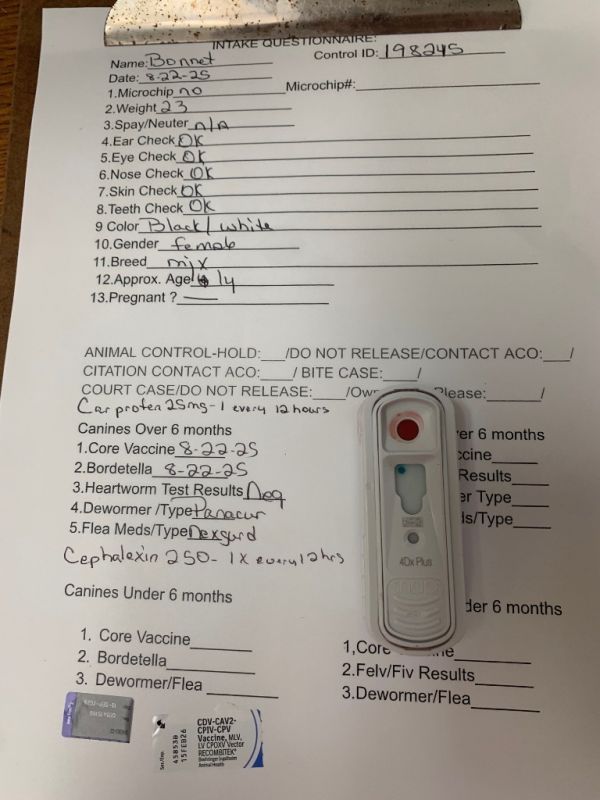 INTAKE QUESTIONNAIRE:
Name: Bonnet Control ID: 198245
Date: 8-22-25
1.Microchip no Microchip#:
2.Weight 23
3.Spay/Neuter n/A
4.Ear Check OK
5.Eye Check OK
6.Nose Check OK
7.Skin Check OK
8.Teeth Check OK
9 Color Black/white
10.Gender female
11.Breed mix
12.Approx. Age 1y
13.Pregnant ? —
ANIMAL CONTROL-HOLD:___/DO NOT RELEASE/CONTACT ACO:___/
CITATION CONTACT ACO:____/ BITE CASE:____/
COURT CASE/DO NOT RELEASE:____/Ow lease:______/
Carprofen 25mg - 1 every 12 hours
Canines Over 6 months
er 6 months
1.Core Vaccine 8-22-25
ccine
2.Bordetella 8-22-25
Results
3.Heartworm Test Results Neg
er Type
4.Dewormer /Type Panacur
ls/Type
5.Flea Meds/Type Nexgard
4Dx Plus
Cephalexin 250 - 1x every 12hrs
Canines Under 6 months
der 6 months
1. Core Vaccine
1,Core ne
2. Bordetella
2.Felv/Fiv Results
3. Dewormer/Flea
3.Dewormer/Flea
CDV-CAV2-
CPIV-CPV
Vaccine, MLV,
LV CPOXV Vector
RECOMBITEK
Boehringer Ingelheim
Animal Health
Ser./Exp.
45853B
15FEB26